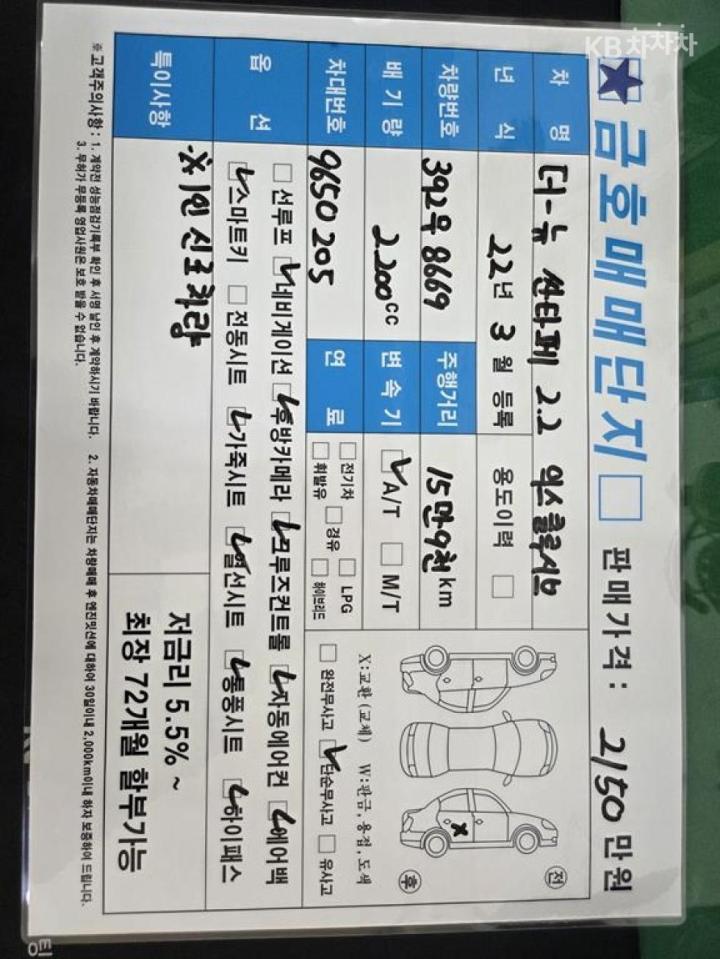 KB차차차
금호매매단지 판매가격 : 2150 만원
차 명 더-뉴 싼타페 2.2 익스클루시브
년 식 22년 3월 등록 용도이력
차량번호 392우 8669 주행거리 15만9천km
배기량 2200cc 변속기 A/T M/T
차대번호 9650205 연 료 전기차 경유 LPG
휘발유 하이브리드
전
후
X:교환 (교체) W:판금,용접,도색
완전무사고 단순무사고 유사고
X
옵 션 선루프 네비게이션 후방카메라 크루즈컨트롤 자동에어컨 에어백
스마트키 전동시트 가죽시트 열선시트 통풍시트 하이패스
특이사항 ※ 1인 신조차량
저금리 5.5% ~
최장 72개월 할부가능
※ 고객주의사항 : 1. 계약전 성능점검기록부 확인 후 서명 날인 후 계약하시기 바랍니다. 2. 자동차매매단지는 차량매매 후 엔진밋션에 대하여 30일이내 2,000km이내 하자 보증하여 드립니다.
3. 무허가 무등록 영업사원은 보호 받을 수 없습니다.